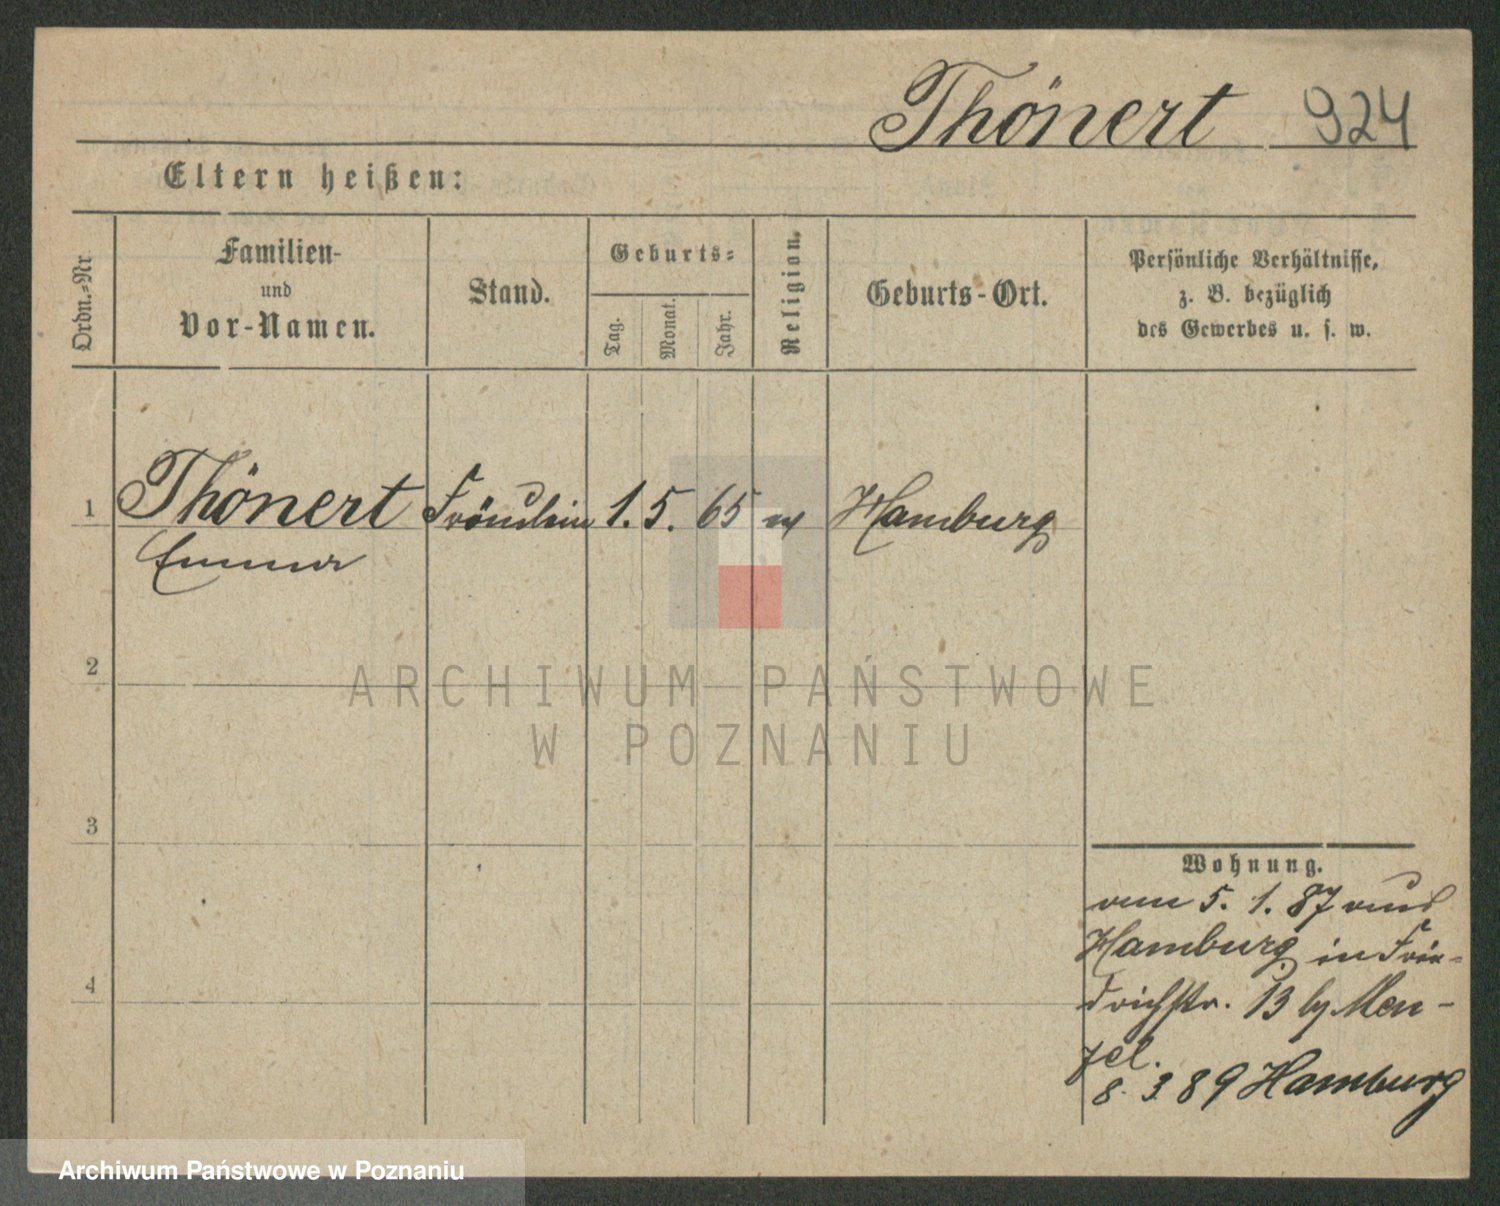 Thönert 924
Eltern heißen:
Ordn.=Nr.
Familien-
und
Vor-Namen.
Stand.
Geburts=
Tag.
Monat.
Jahr.
Religion.
Geburts-Ort.
Persönliche Verhältnisse,
z. B. bezüglich
des Gewerbes u. s. w.
1 Thönert Fräulein 1. 5. 65 Hamburg
Emma
2
ARCHIWUM PAŃSTWOWE
W POZNANIU
3
Wohnung.
5. 1. 87 aus
Hamburg in Frie=
4
drichstr. 13 by Men-
zel.
8. 3. 89 Hamburg
Archiwum Państwowe w Poznaniu